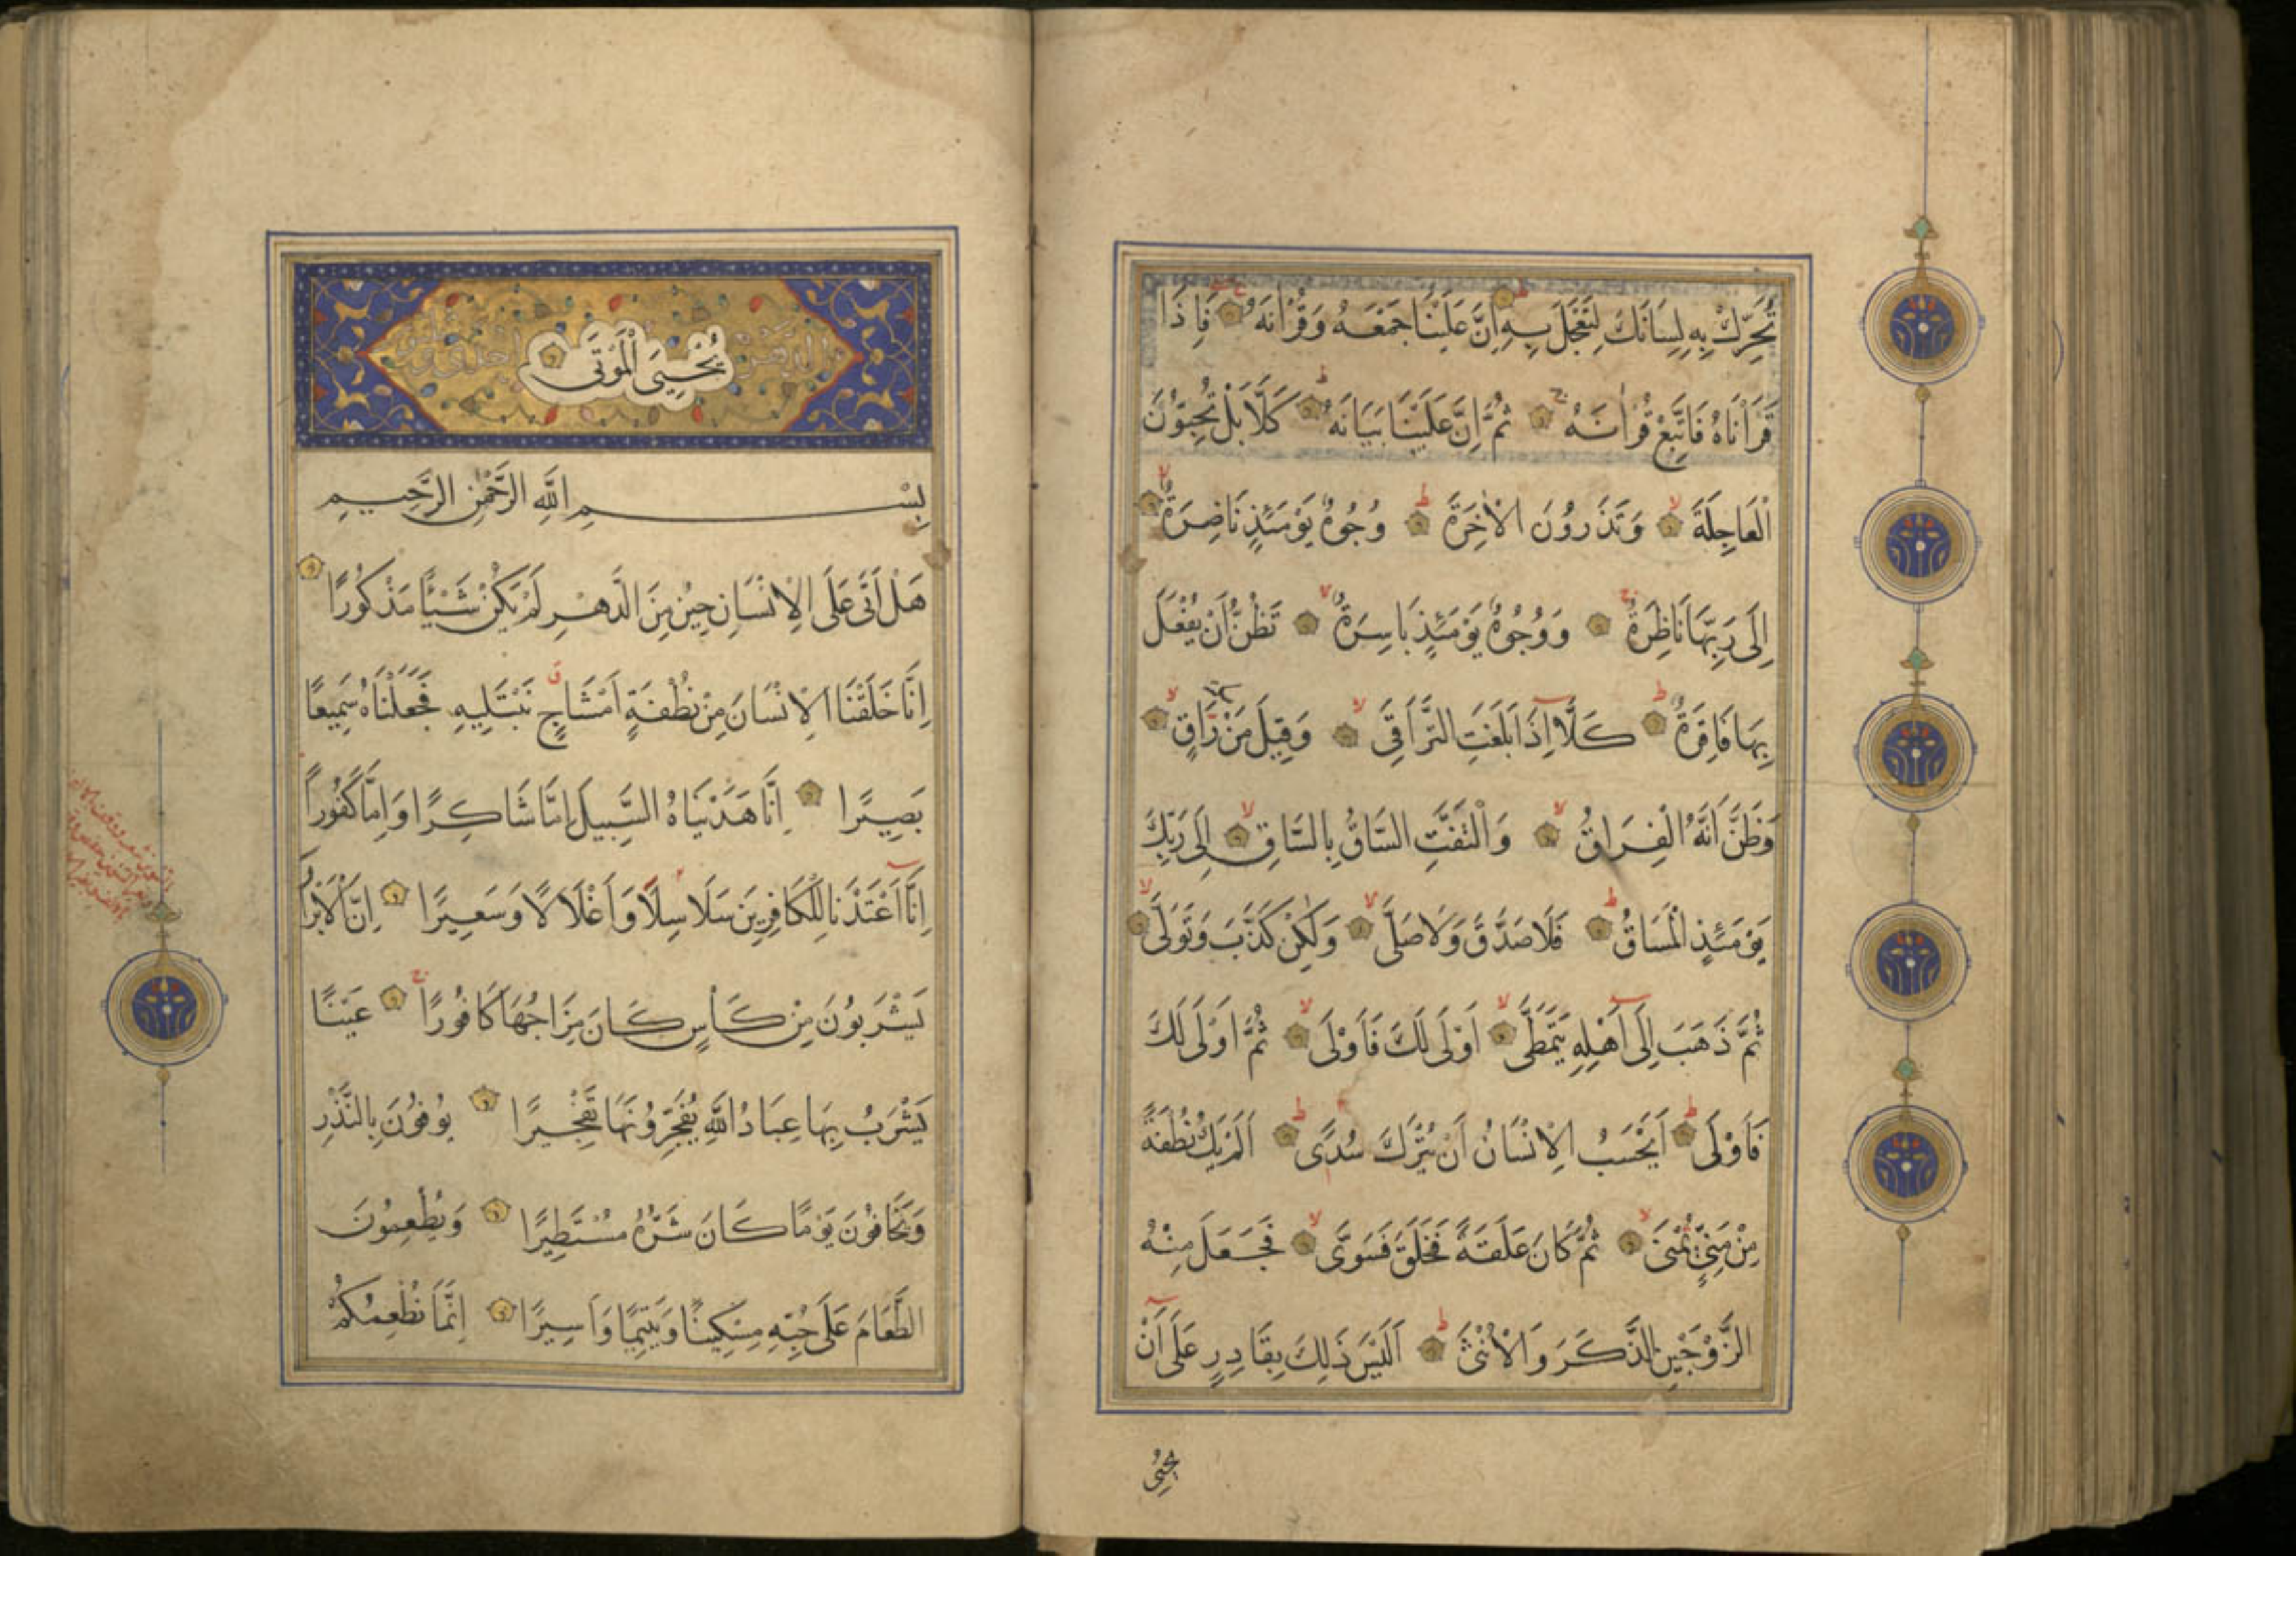 تُحَرِّكْ بِهِ لِسَانَكَ لِتَعْجَلَ بِهِ اِنَّ عَلَيْنَا جَمْعَهُ وَقُرْاٰنَهُ فَاِذَا
قَرَأْنَاهُ فَاتَّبِعْ قُرْاٰنَهُ ثُمَّ اِنَّ عَلَيْنَا بَيَانَهُ كَلَّا بَلْ تُحِبُّونَ
الْعَاجِلَةَ وَتَذَرُونَ الْاٰخِرَةَ وُجُوهٌ يَوْمَئِذٍ نَاضِرَةٌ
اِلَى رَبِّهَا نَاظِرَةٌ وَوُجُوهٌ يَوْمَئِذٍ بَاسِرَةٌ تَظُنُّ اَنْ يُفْعَلَ
بِهَا فَاقِرَةٌ كَلَّا اِذَا بَلَغَتِ التَّرَاقِيَ وَقِيلَ مَنْ رَاقٍ
وَظَنَّ اَنَّهُ الْفِرَاقُ وَالْتَفَّتِ السَّاقُ بِالسَّاقِ اِلَى رَبِّكَ
يَوْمَئِذٍ الْمَسَاقُ فَلَا صَدَّقَ وَلَا صَلَّى وَلٰكِنْ كَذَّبَ وَتَوَلَّى
ثُمَّ ذَهَبَ اِلَى اَهْلِهِ يَتَمَطَّى اَوْلَى لَكَ فَاَوْلَى ثُمَّ اَوْلَى لَكَ
فَاَوْلَى اَيَحْسَبُ الْاِنْسَانُ اَنْ يُتْرَكَ سُدًى اَلَمْ يَكُ نُطْفَةً
مِنْ مَنِيٍّ يُمْنَى ثُمَّ كَانَ عَلَقَةً فَخَلَقَ فَسَوَّى فَجَعَلَ مِنْهُ
الزَّوْجَيْنِ الذَّكَرَ وَالْاُنْثَى اَلَيْسَ ذَلِكَ بِقَادِرٍ عَلَى اَنْ
يُحْيِيَ
يُحْيِيَ الْمَوْتَى
بِسْمِ اللّٰهِ الرَّحْمٰنِ الرَّحِيمِ
هَلْ اَتَى عَلَى الْاِنْسَانِ حِينٌ مِنَ الدَّهْرِ لَمْ يَكُنْ شَيْئًا مَذْكُورًا
اِنَّا خَلَقْنَا الْاِنْسَانَ مِنْ نُطْفَةٍ اَمْشَاجٍ نَبْتَلِيهِ فَجَعَلْنَاهُ سَمِيعًا
بَصِيرًا اِنَّا هَدَيْنَاهُ السَّبِيلَ اِمَّا شَاكِرًا وَاِمَّا كَفُورًا
اِنَّا اَعْتَدْنَا لِلْكَافِرِينَ سَلَاسِلًا وَاَغْلَالًا وَسَعِيرًا اِنَّ الْاَبْرَارَ
يَشْرَبُونَ مِنْ كَأْسٍ كَانَ مِزَاجُهَا كَافُورًا عَيْنًا
يَشْرَبُ بِهَا عِبَادُ اللّٰهِ يُفَجِّرُونَهَا تَفْجِيرًا يُوفُونَ بِالنَّذْرِ
وَيَخَافُونَ يَوْمًا كَانَ شَرُّهُ مُسْتَطِيرًا وَيُطْعِمُونَ
الطَّعَامَ عَلَى حُبِّهِ مِسْكِينًا وَيَتِيمًا وَاَسِيرًا اِنَّمَا نُطْعِمُكُمْ